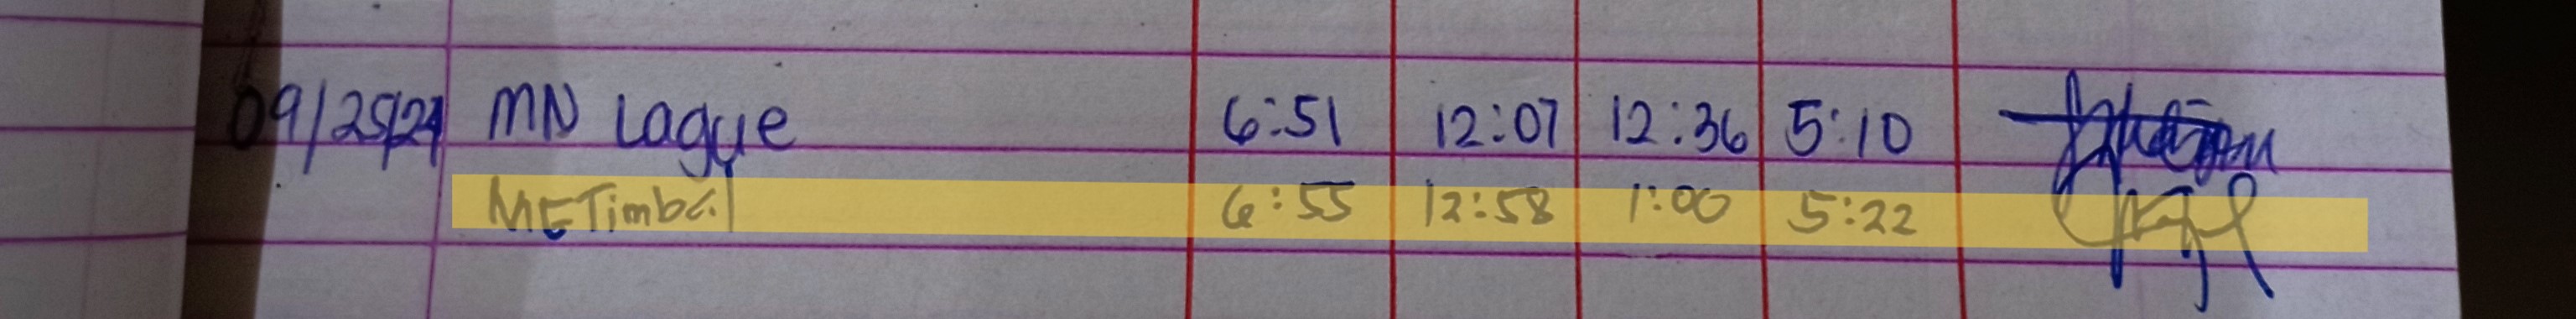 09/25/24 MN Lague 6:51 12:07 12:36 5:10
METimbal 6:55 12:58 1:00 5:22